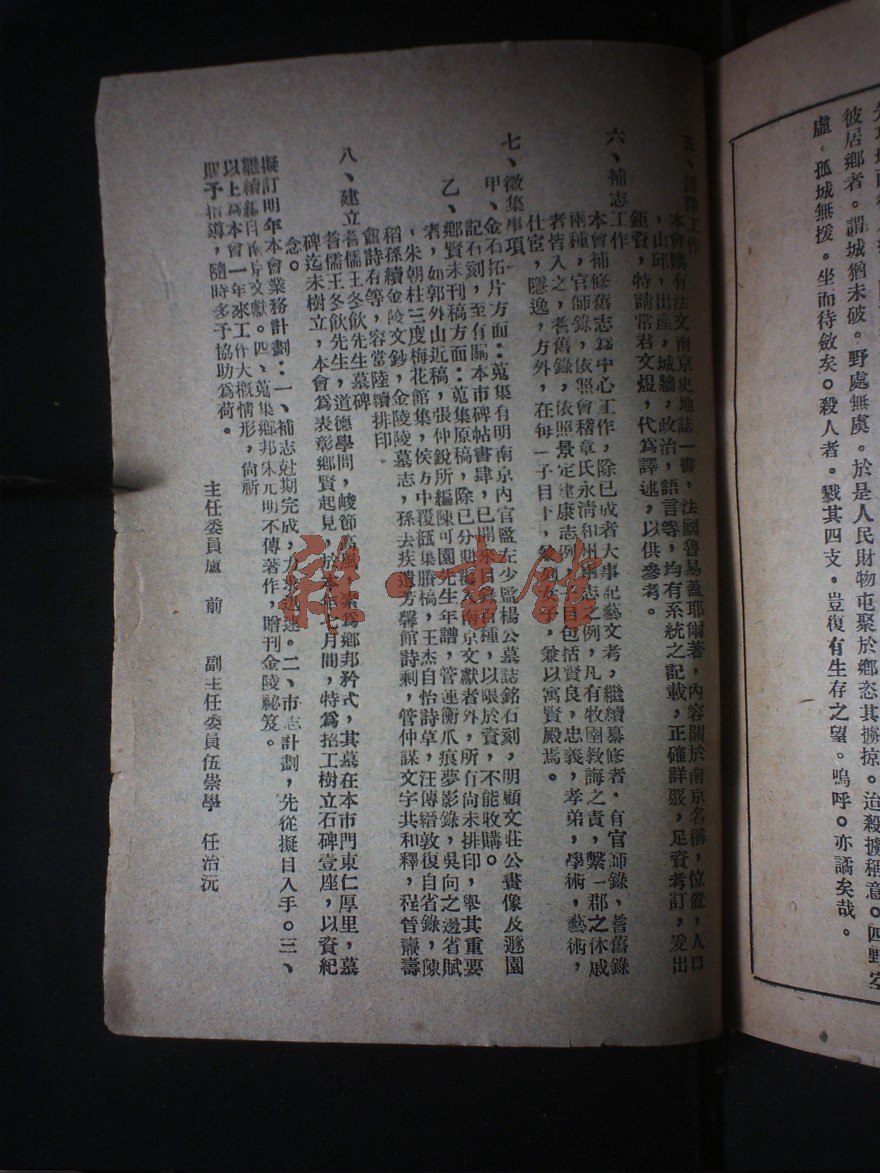 先攻城而後
彼居鄉者。謂城猶未破。野處無虞。於是人民財物屯聚於鄉恣其擄掠。迨殺擄稱意。四野空
虛。孤城無援。坐而待斂矣。殺人者。戮其四支。豈復有生存之望。嗚呼。亦譎矣哉。
五、工作
本會購有法文南京史地誌一書，法國魯易蓋耶爾著，內容關於南京名稱，位置，人口
，山邱，出產，城牆，政治，語言等，均有系統之記載，正確詳嚴，足資考訂，爰出
鉅資，特請常君文煜，代為譯述，以供參考。
六、補志工作
本會補修舊志為中心工作，除已成者大事記藝文考，繼續纂修者，有官師錄，耆舊錄
兩種，官師錄，依照會稽章氏永清和州兩志之例，凡有牧圉教誨之責，繫一郡之休戚
者皆入之，耆舊錄，依照景定建康志例，子目包括賢良，忠義，孝弟，學術，藝術，
仕宦，隱逸，方外，在每一子目下，兼以寓賢殿焉。
七、徵集事項
甲、金石拓片方面：蒐集有明南京內官監左少監楊公墓誌銘石刻，明顧文莊公畫像及遯園
記石刻，至有關本市碑帖書肆，已開來目錄百種，以限於資，不能收購。
乙、鄉賢未刊稿方面：蒐集原稿，除已分期刊入南京文獻者外，所有尚未排印，舉其重要
者，如郭外山近稿，張仲銳所編陳可園先生年譜，管連衡爪痕夢影錄，吳向之邊省賦
，朱朝杜三度梅花館集，侯方中覆瓿集賸槁，王杰自怡詩草，汪傅縉敦復自省錄，陳
稻孫續金陵文鈔，金陵陵墓志，孫去疾遺芳馨館詩剩，管仲謀文字共和釋，程管齋壽
舊詩有等，容當陸續排印。
八、建立耆儒王冬飲先生墓碑
耆儒王冬飲先生，道德學問，峻節高風，素為鄉邦矜式，其墓在本市門東仁厚里，墓
碑迄未樹立，本會為表彰鄉賢起見，於本年七月間，特為招工樹立石碑壹座，以資紀
念。
擬訂明年本會業務計劃：一、補志尅期完成，力求迅速。二、市志計劃，先從擬目入手。三、
繼續編印南京文獻。四、蒐集鄉邦宋元明不傳著作，贈刊金陵祕笈。
以上為本會一年來工作大概情形，尚祈
賜予指導，隨時多予協助為荷。
主任委員盧 前 副主任委員伍崇學 任治沅
雜·書館